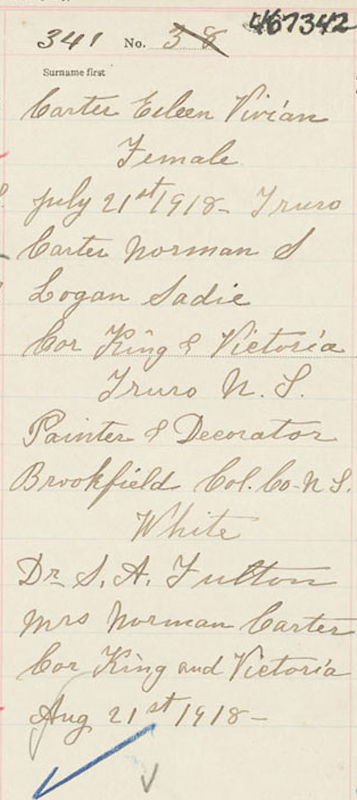 467342
341 No. 38
Surname first
Carter Eileen Vivian
Female
July 21st 1918 - Truro
Carter Norman S
Logan Sadie
Cor King & Victoria
Truro N. S.
Painter & Decorator
Brookfield Col. Co. N S.
White
Dr S. A. Fulton
Mrs Norman Carter
Cor King and Victoria
Aug 21st 1918 -